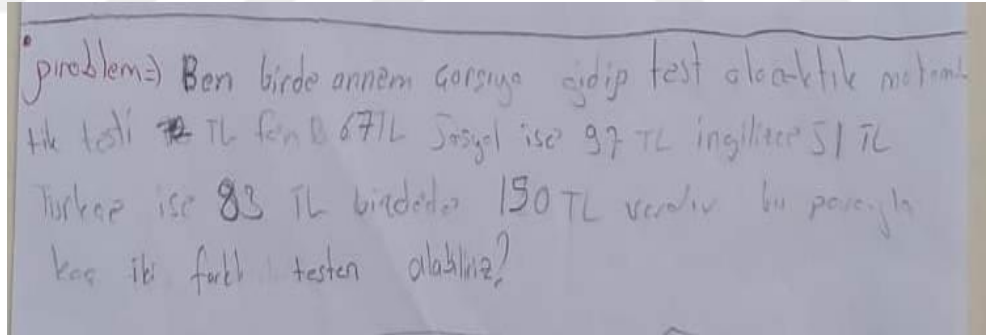 piroblem=) Ben birde annem Çarşıya gidip test alcaktık matema
tik testi TL fen 67TL Sosyal ise 97 TL ingilizce 51 TL
Türkçe ise 83 TL birdede 150 TL verdiv bu parayla
kaç iki farklı testen alabiliriz?